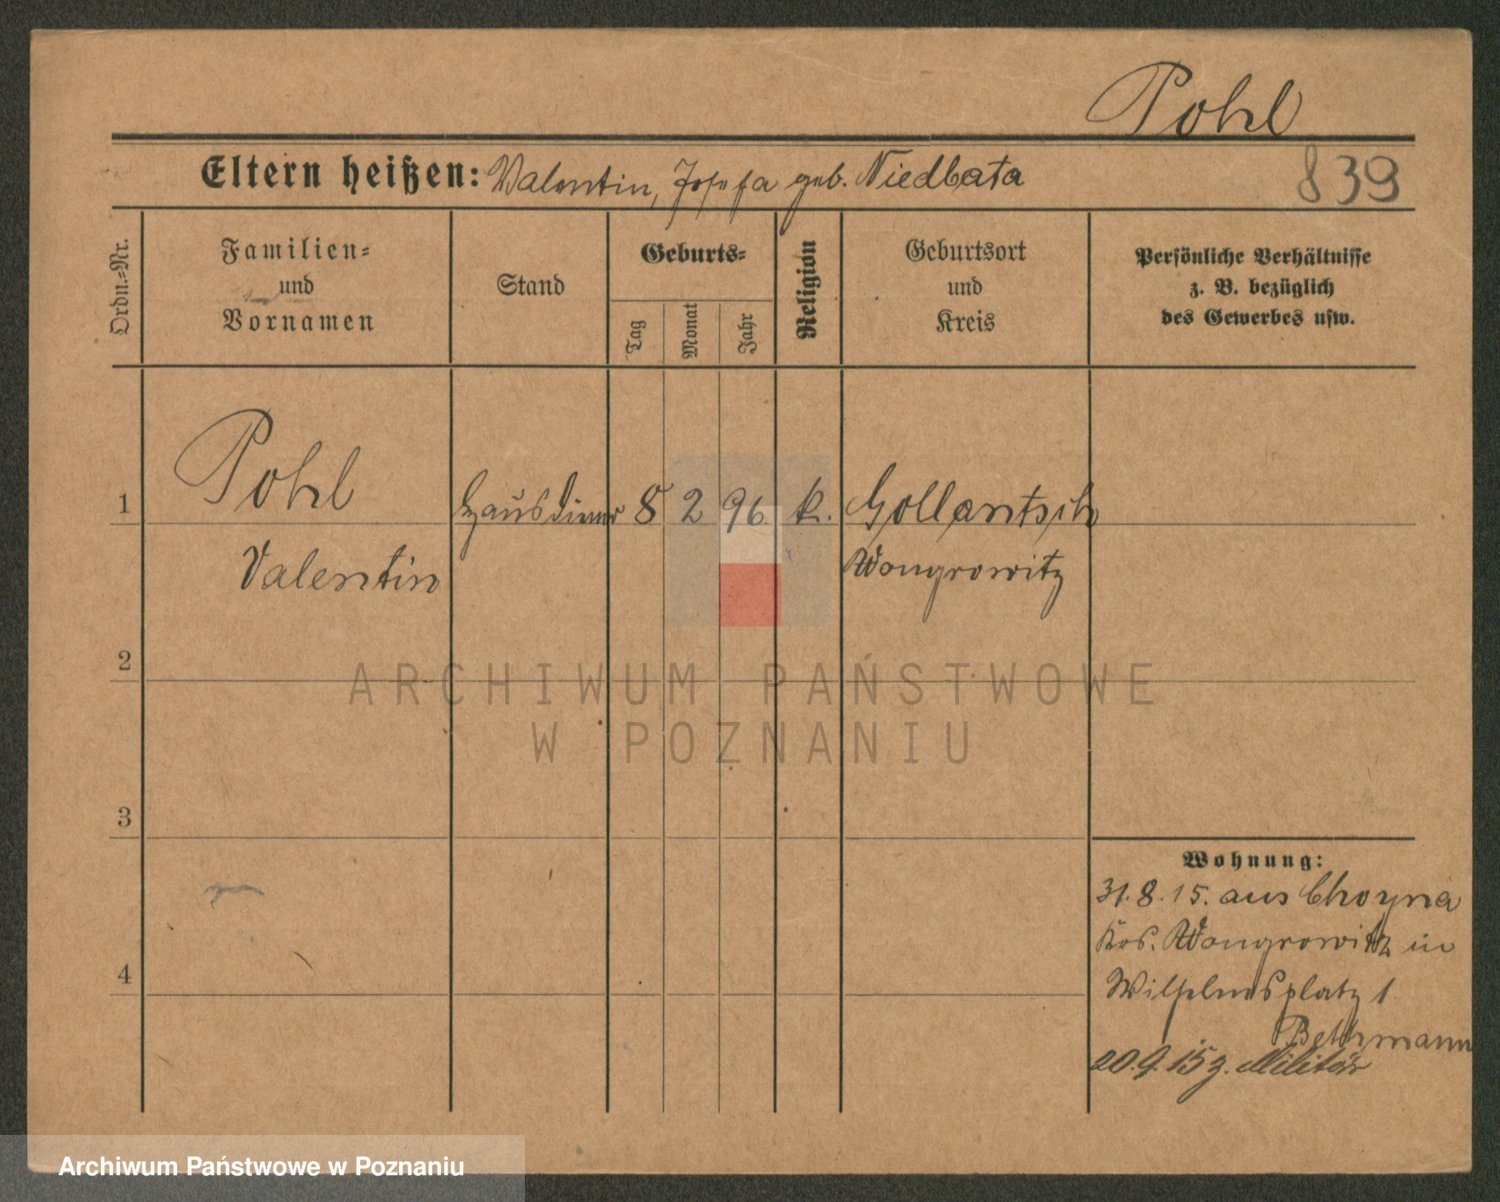 Pohl
Eltern heißen: Valentin, Josefa geb. Niedbata
839
Ordn.-Nr.
Familien-
und
Vornamen
Stand
Geburts-
Tag
Monat
Jahr
Religion
Geburtsort
und
Kreis
Persönliche Verhältnisse
z. B. bezüglich
des Gewerbes usw.
1
Pohl
Hausdiener 8 2 96. k. Gollantsch
Valentin
Wongrowitz
2
ARCHIWUM PAŃSTWOWE
W POZNANIU
3
4
Wohnung:
31.8.15. aus Choyna
Krs. Wongrowitz in
Wilhelmsplatz 1.
Bethmann
20.9.15 z. Militär
Archiwum Państwowe w Poznaniu